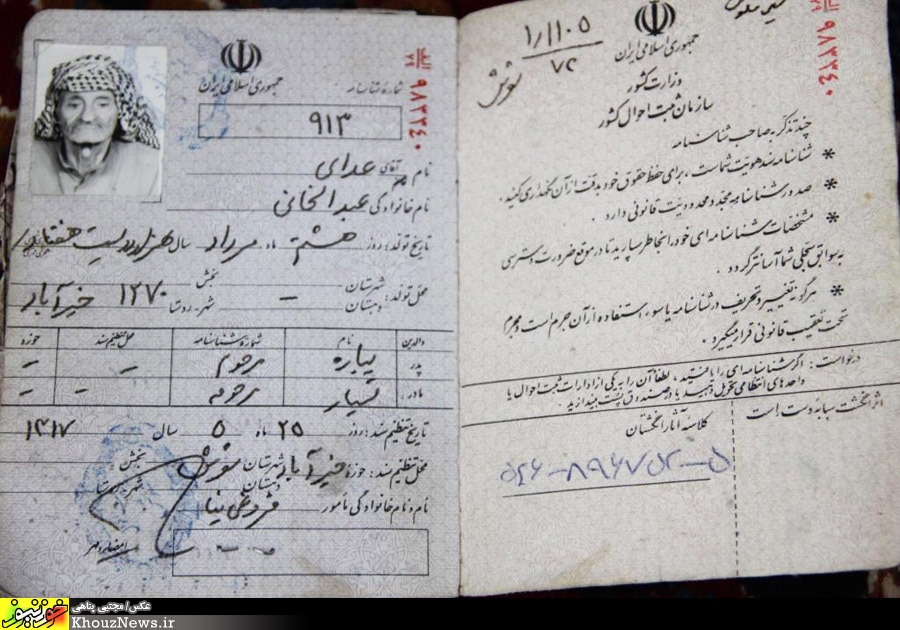 جمهوری اسلامی ایران
شماره شناسنامه
۹۱۳
الف ۲۹ ۹۸۳۳۴۰
نام آقای عدای
نام خانوادگی عبدالخانی
تاریخ تولد: روز هشتم ماه مرداد سال هزار و دویست هفتاد
محل تولد: شهرستان بخش
دهستان – شهر-روستا ۱۲۷۰ خیرآباد
والدین نام شماره شناسنامه محل تنظیم سند حوزه
پدر: یباره مرحوم – –
مادر: مرحومه – –
تاریخ تنظیم سند: روز ۲۵ ماه ۵ سال ۱۳۱۷
محل تنظیم سند: حوزه خیرآباد شهرستان شوش بخش
دهستان شهر-روستا
نام و نام خانوادگی مأمور فروغی نیا
امضاء و مهر
۱/۱۱۰۵
۷۲
شوش
الف ۲۹ ۹۸۳۳۴۰
جمهوری اسلامی ایران
وزارت کشور
سازمان ثبت احوال کشور
چند تذکر به صاحب شناسنامه
* شناسنامه سند هویت شماست، برای حفظ حقوق خود بدقت از آن نگهداری کنید.
* صدور شناسنامه مجدد محدودیت قانونی دارد.
* مشخصات شناسنامه ای خود را بخاطر بسپارید تا در موقع ضرورت دسترسی
به سوابق سجلی شما آسانتر گردد.
* هرگونه تغییر و تحریف در شناسنامه یا سوء استفاده از آن جرم است و مجرم
تحت تعقیب قانونی قرار میگیرد.
درخواست: اگر شناسنامه ای را یافتید، لطفاً آن را به یکی از ادارات ثبت احوال یا
واحدهای انتظامی تحویل دهید یا در صندوق پست بیندازید.
اثر انگشت سبابه دست است
کلاسه آثار انگشتان
عکس/ مجتبی پناهی
خوزنیوز
KhouzNews.ir